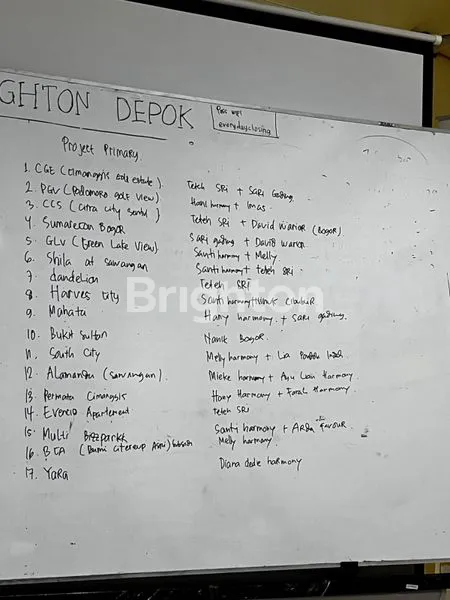 GHTON DEPOK
Pass wifi
everydayclosing
Project Primary.
1. CGE (Cimanggis Gold estate). Teteh SRi + Sari Gading.
2. PGV (Podomoro golf View) Hani harmony + Imas.
3. CCS (Citra City Sentul) Teteh SRi + David Warior (Bogor)
4. Sumarecon Bogor Sari gading + David warior
5. GLV (Green Lake View) Santi harmony + Melly
6. Shila at sawangan Santi harmony + teteh sri.
7. dandelion Teteh SRI
8. Harves city Santi harmony
9. Mahata Hany harmony. + Sari gading.
10. Bukit Sultan Nanik Bogor.
11. South City Melly harmony + La
12. Alamanda (sawangan). Mieke harmony + Ayu Harmony
13. Permata Cimanggis Hany Harmony + Farah Harmony
14. Evercio Apartement teteh SRI
15. Multi Bizzparkk Santi harmony + Favour.
16. BCA (Bumi Citereup Asri) Subsidi Melly harmony.
17. Yara Diana dede harmony
Brighton